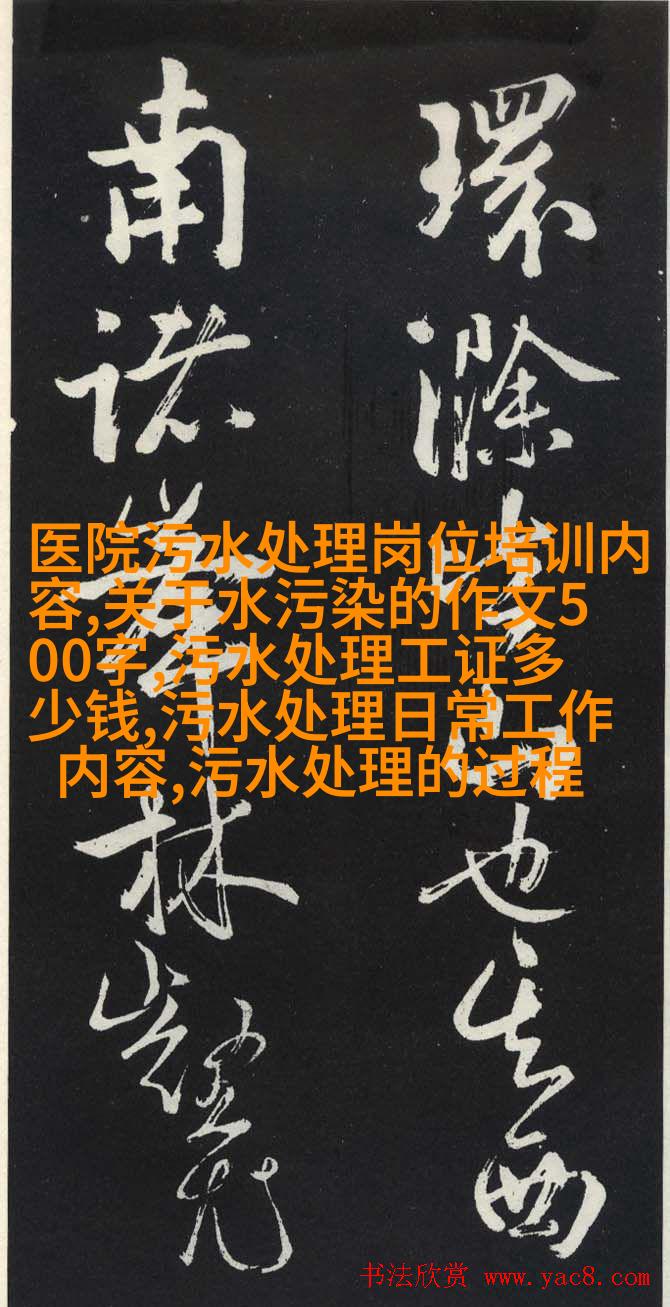 環滁皆山也其西
南諸峯林壑尤
医院污水处理岗位培训内
容,关于水污染的作文5
00字,污水处理工证多
少钱,污水处理日常工作
内容,污水处理的过程
书法欣赏 www.yac8.com